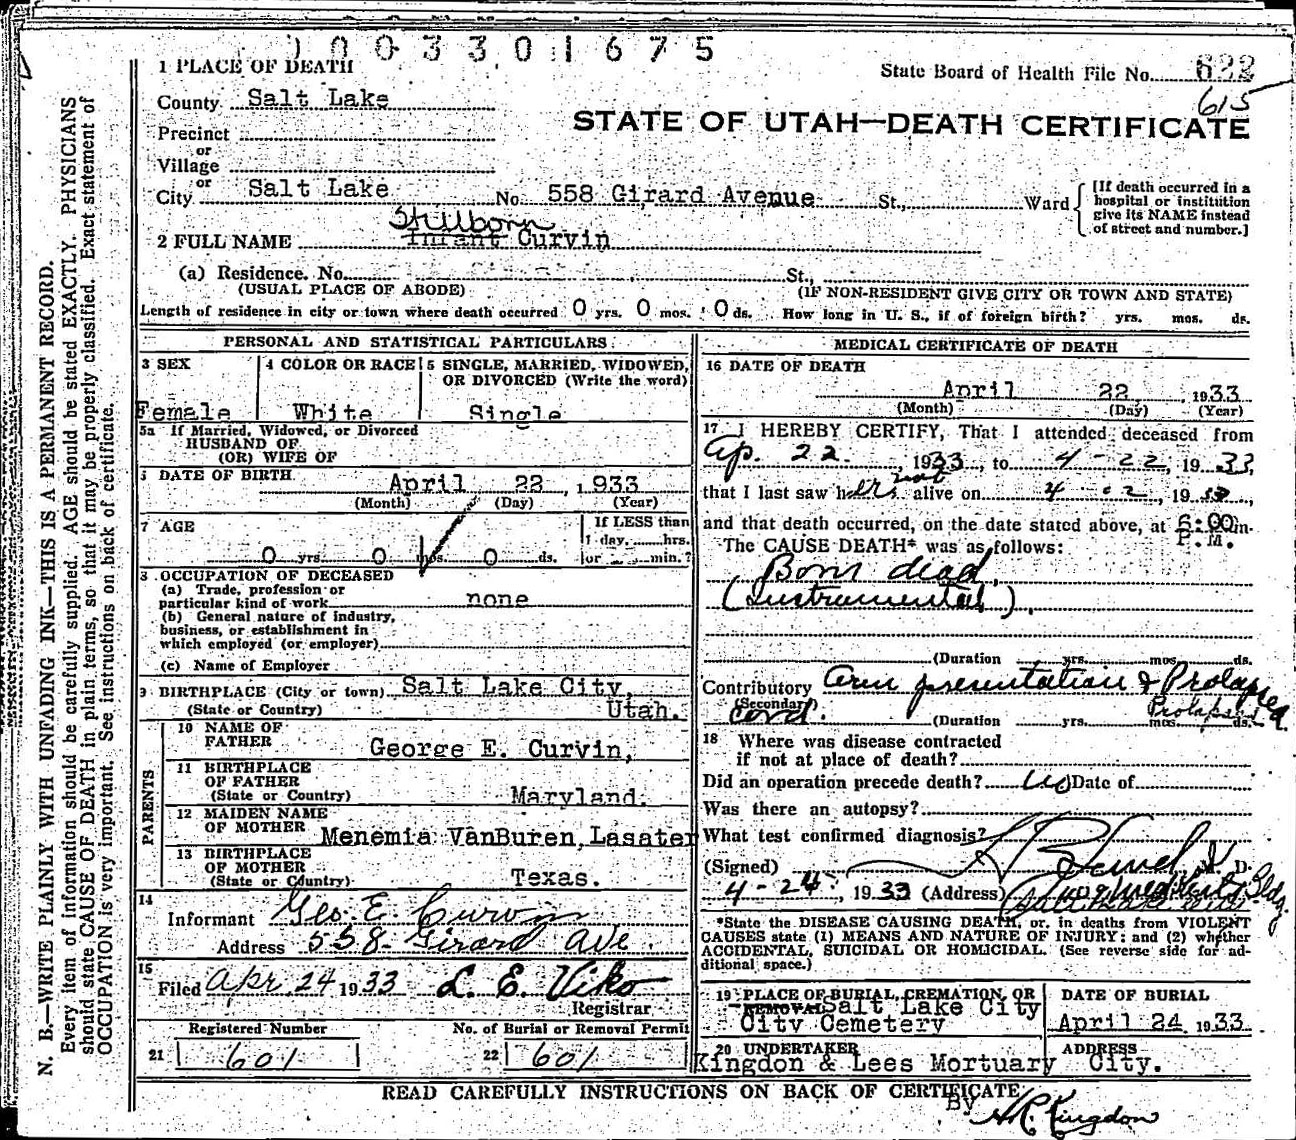 1003301675
1 PLACE OF DEATH
State Board of Health File No. 622
615
County Salt Lake
STATE OF UTAH—DEATH CERTIFICATE
Precinct
or
Village
or
City Salt Lake No. 558 Girard Avenue St., Ward
[If death occurred in a hospital or institution give its NAME instead of street and number.]
Stillborn
2 FULL NAME Infant Curvin
(a) Residence. No. St.,
(USUAL PLACE OF ABODE) (IF NON-RESIDENT GIVE CITY OR TOWN AND STATE)
Length of residence in city or town where death occurred 0 yrs. 0 mos. 0 ds. How long in U. S., if of foreign birth? yrs. mos. ds.
PERSONAL AND STATISTICAL PARTICULARS
3 SEX
Female
4 COLOR OR RACE
White
5 SINGLE, MARRIED, WIDOWED, OR DIVORCED (Write the word)
Single
5a If Married, Widowed, or Divorced
HUSBAND OF
(OR) WIFE OF
6 DATE OF BIRTH
April 22, 1933
(Month) (Day) (Year)
7 AGE
0 yrs. 0 mos. 0 ds.
If LESS than
1 day, hrs.
or min.?
8 OCCUPATION OF DECEASED
(a) Trade, profession or
particular kind of work none
(b) General nature of industry,
business, or establishment in
which employed (or employer)
(c) Name of Employer
9 BIRTHPLACE (City or town) Salt Lake City,
(State or Country) Utah.
PARENTS
10 NAME OF
FATHER George E. Curvin,
11 BIRTHPLACE
OF FATHER
(State or Country) Maryland.
12 MAIDEN NAME
OF MOTHER Menemia VanBuren Lasater
13 BIRTHPLACE
OF MOTHER
(State or Country) Texas.
14
Informant Geo. E. Curvin
Address 558- Girard Ave.
15
Filed Apr. 24 1933 L. E. Viko
Registrar
Registered Number No. of Burial or Removal Permit
21 601 22 601
MEDICAL CERTIFICATE OF DEATH
16 DATE OF DEATH
April 22, 1933
(Month) (Day) (Year)
17 I HEREBY CERTIFY, That I attended deceased from
Ap. 22, 1933, to 4-22, 19 33,
not
that I last saw her alive on 4 19 33,
and that death occurred, on the date stated above, at 6:00 m.
P.M.
The CAUSE DEATH* was as follows:
Born dead,
(Instrumental).
(Duration yrs. mos. ds.
Contributory Arm presentation & Prolapsed
(Secondary) cord. Prolapsed
(Duration yrs. mos. ds.
18 Where was disease contracted
if not at place of death?
Did an operation precede death? no Date of
Was there an autopsy?
What test confirmed diagnosis?
(Signed) M. D.
4-24, 1933 (Address)
*State the DISEASE CAUSING DEATH, or, in deaths from VIOLENT
CAUSES state (1) MEANS AND NATURE OF INJURY; and (2) whether
ACCIDENTAL, SUICIDAL OR HOMICIDAL. (See reverse side for ad-
ditional space.)
19 PLACE OF BURIAL, CREMATION, OR
REMOVAL Salt Lake City
City Cemetery
DATE OF BURIAL
April 24 1933
20 UNDERTAKER
Kingdon & Lees Mortuary
ADDRESS
City.
READ CAREFULLY INSTRUCTIONS ON BACK OF CERTIFICATE
By H.R. Kingdon
N. B.—WRITE PLAINLY WITH UNFADING INK—THIS IS A PERMANENT RECORD.
Every item of information should be carefully supplied. AGE should be stated EXACTLY. PHYSICIANS
should state CAUSE OF DEATH in plain terms, so that it may be properly classified. Exact statement of
OCCUPATION is very important. See instructions on back of certificate.